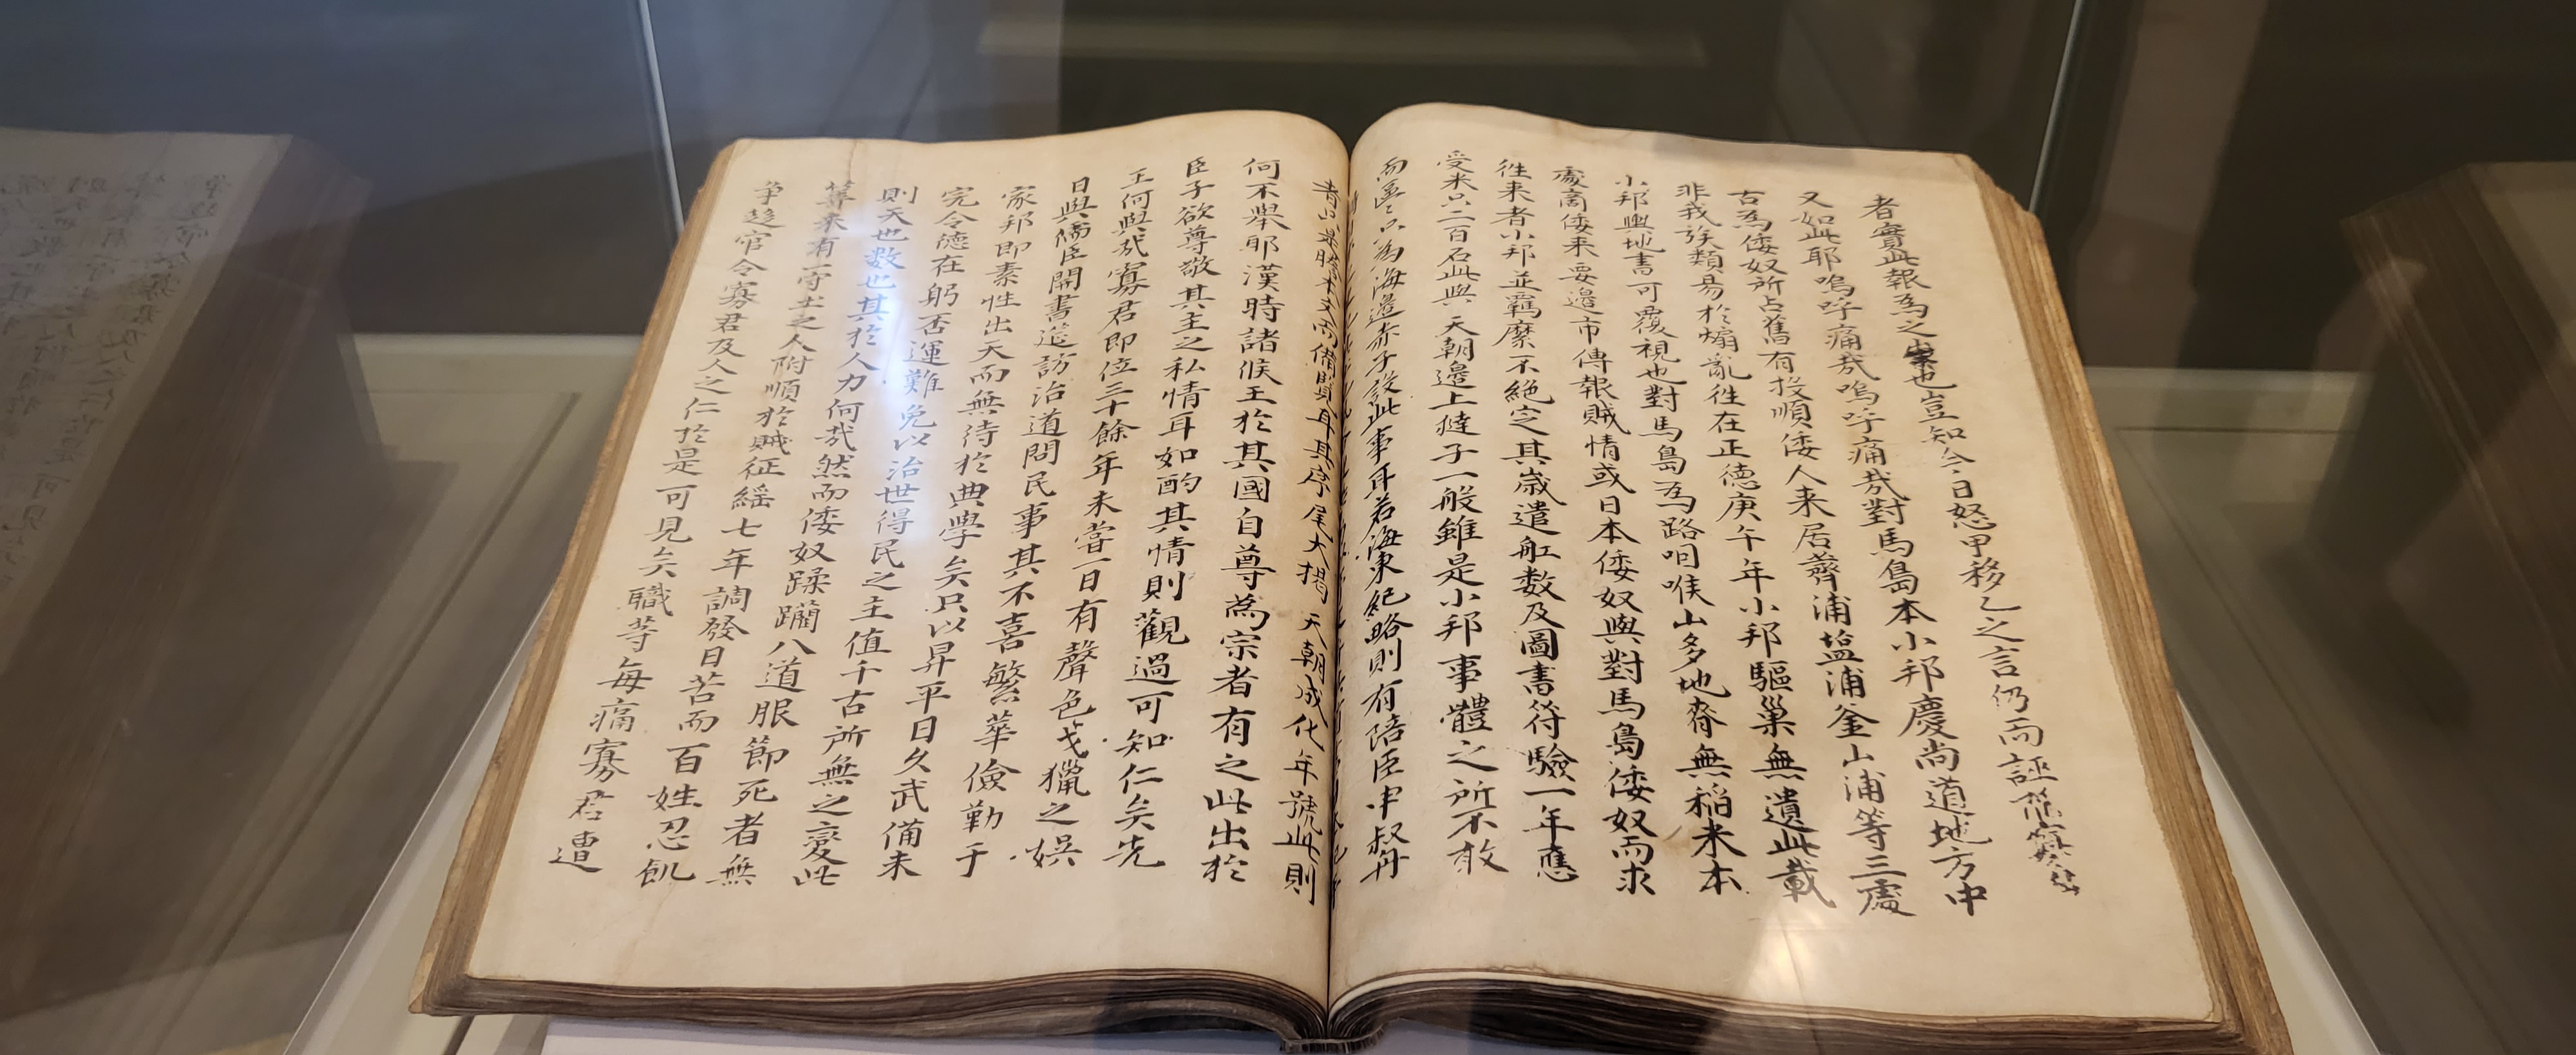 者實此報為之祟也豈知今日怒甲移乙之言仍而誣
又如此耶嗚呼痛哉嗚呼痛哉對馬島本小邦慶尚道地方中
古為倭奴所占舊有投順倭人来居薺浦塩浦釜山浦等三處
非我族類易於煽亂徃在正德庚午年小邦驅巢無遺此載
小邦輿地書可覆視也對馬島為路咽喉山多地瘠無稲米本
處商倭来要邊市傳報賊情或日本倭奴與對馬島倭奴而求
徃来者小邦並羈縻不絶定其歳遣舡数及圖書符驗一年應
受米只二百石此與 天朝邊上㺚子一般雖是小邦事體之所不敢
而區區只為海邊赤子設此事耳若海東紀略則有陪臣申叔舟
者只是謄本文而備覧耳其序尾大揭 天朝成化年號此則
何不舉耶漢時諸候王於其國自尊為宗者有之此出於
臣子欲尊敬其主之私情耳如酌其情則觀過可知仁矣先
王何與哉寡君即位三十餘年未嘗一日有聲色戈獵之娯
日與儒臣開書筵訪治道問民事其不喜繁華儉勤于
家邦即素性出天而無待於典學矣只以昇平日久武備未
完令德在躬否運難免以治世得民之主值千古所無之變此
則天也数也其於人力何哉然而倭奴蹂躪八道服節死者無
算未有一守土之人附順於賊征繇七年調發日苦而百姓忍飢
争趍官令寡君及人之仁於是可見矣職等每痛寡君遭